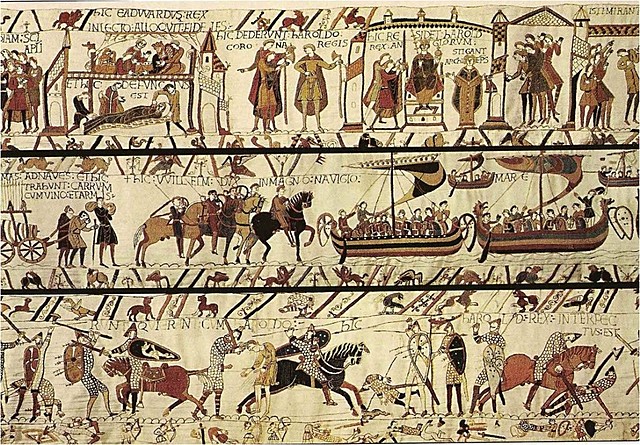 HIC EADWARDVS:REX
IN LECTO:ALLOQVIT:FIDELES:
ET HIC:DEFVNCTVS
EST
HIC DEDERVNT:HAROLDO:
CORONA REGIS
HIC RE
SIDET:HAROLD
REX:AN
GLORVM:
STIGANT
ARCHIEPS
ISTI MIRANT
AD NAVES:ET HIC
TRAHVNT:CARRVM
CVM VINO:ET ARMIS:
HIC:WILLELM:DVX
IN MAGNO:NAVIGIO:
MARE
HIC
HAROLD:REX:INTERFEC
TVS:EST